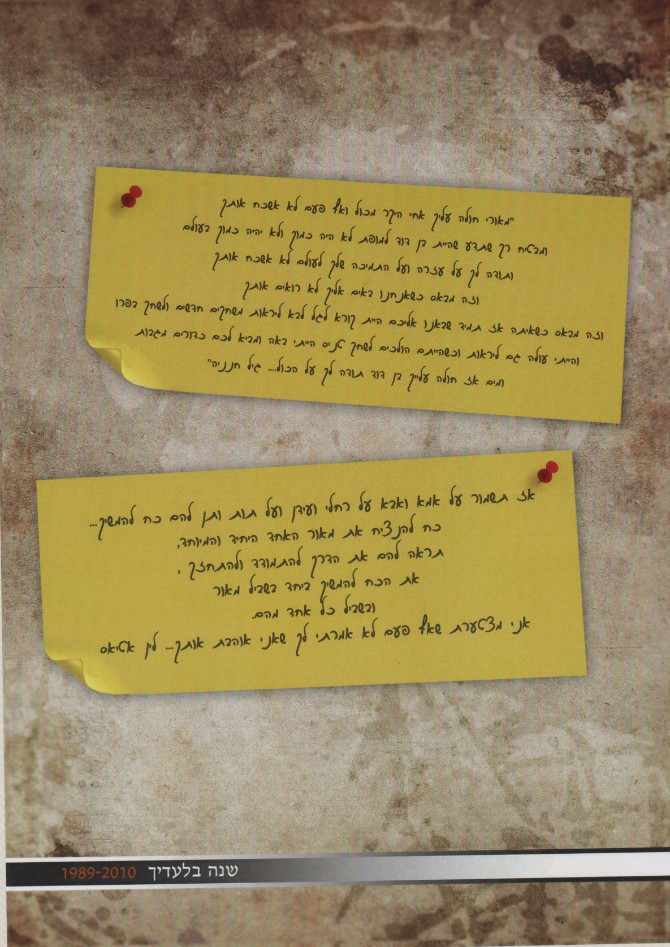 "מאורי חולה עליך אחי היקר מכול ואף פעם לא אשכח אותך
ומבטיח רק שתדע שהיית בן דוד למופת לא היה כמוך ולא יהיה כמוך בעולם
ותודה לך על עזרה ועל התמיכה שלך לעולם לא אשכח אותך
וזה מבאס כשאנחנו באים אליך לא רואים אותך
וזה מבאס כשאיתה אז תמיד שבאנו אליכם היית קורא לגל לבא ליראות משחקים חדשים ולשחק בפרו
והייתי עולה גם ליראות וכשהייתם הולכים לשחק טניס הייתי באה ומביא לכם כדורים מגבות
ומים אז חולה עלייך בן דוד תודה לך על הכול... גיל חנניה"
אז תשמור על אמא ואבא על רחלי ועידן ועל תות ותן להם כח להמשיך...
כח להנציח את מאור האחד היחיד והמיוחד,
תראה להם את הדרך להתמודד ולהתחזק ,
את הכח להמשיך ביחד בשביל מאור
ובשביל כל אחד מהם.
אני מצטערת שאף פעם לא אמרתי לך שאני אוהבת אותך... לין אטיאס
שנה בלעדיך 1989-2010